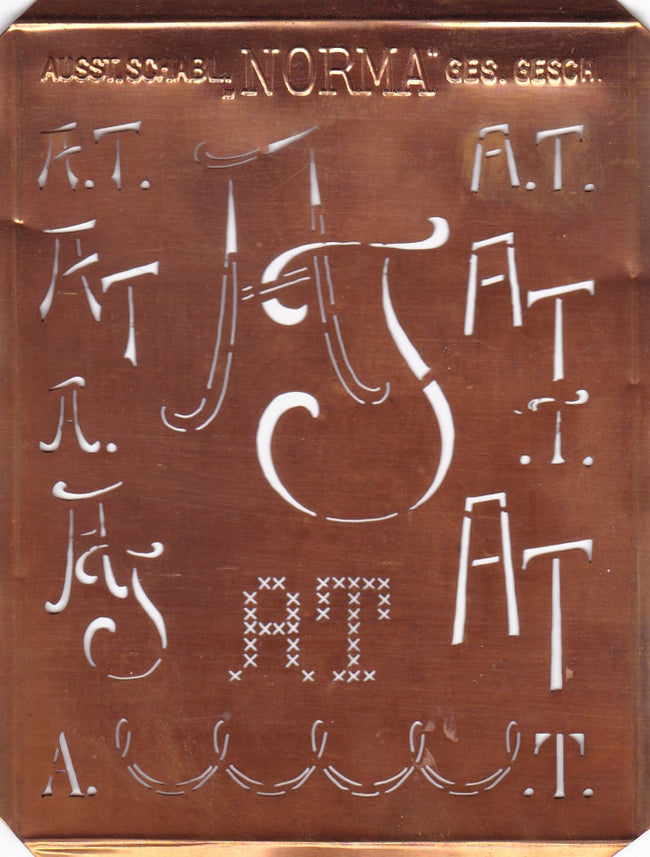 AUSST. SCHABL. „NORMA“ GES. GESCH.
A.T.
AT
A.T.
AT
AT
A.
.T.
AT
AT
AT
A.
.T.